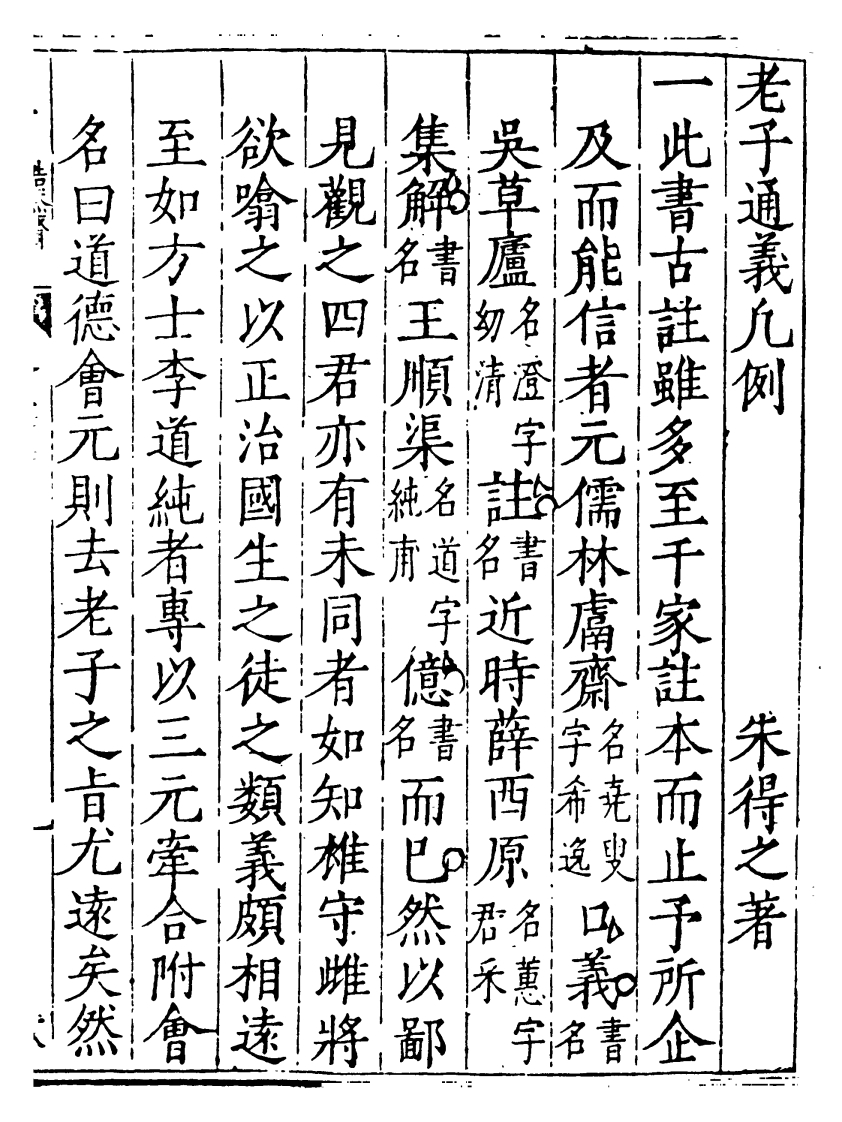 老子通義凡例　朱得之著
一此書古註雖多至千家註本而止予所企
及而能信者元儒林鬳齋名堯叟字希逸口義書名
吳草廬名澄字幼清註書名近時薛西原名蕙字君采
集解書名王順渠名道字純甫億書名而已然以鄙
見觀之四君亦有未同者如知雄守雌將
欲噏之以正治國生之徒之類義頗相遠
至如方士李道純者專以三元牽合附會
名曰道德會元則去老子之旨尤遠矣然